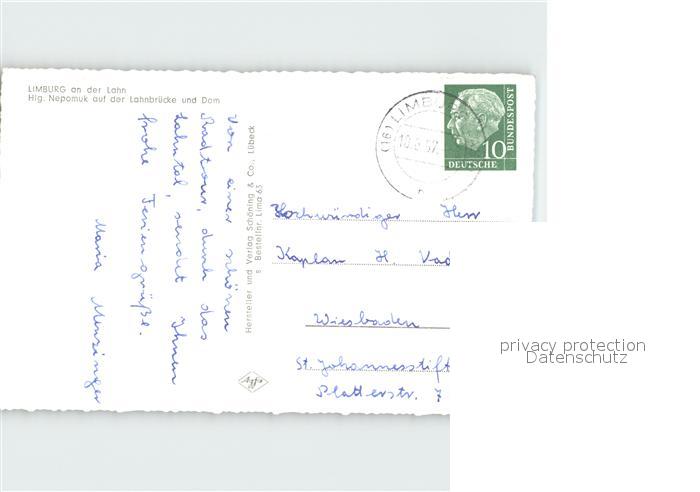 LIMBURG an der Lahn
Hlg. Nepomuk auf der Lahnbrücke und Dom
Von einer schönen
Radtour, durch das
Lahntal, sendet Ihnen
frohe Feriengrüße.
Maria Menzinger
Hersteller und Verlag Schöning & Co., Lübeck
s Bestellnr. Lima 63
Agfa
(16) LIMBU
10
DEUTSCHE
BUNDESPOST
Hochwürdiger Herr
Kaplan H. Vad
Wiesbaden
St. Johannesstift
Platterstr. 7
privacy protection
Datenschutz